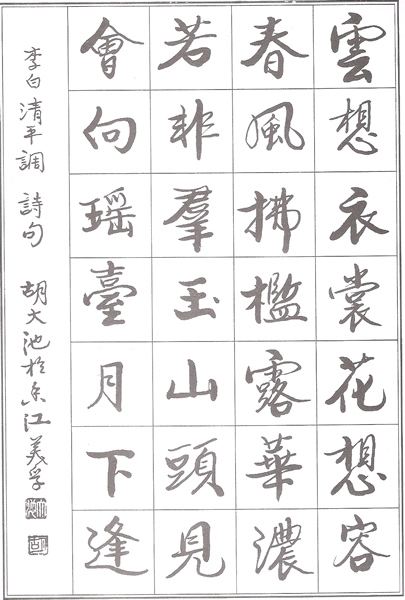 雲想衣裳花想容
春風拂檻露華濃
若非羣玉山頭見
會向瑶臺月下逢
李白清平調 詩句 胡大池於香江美孚